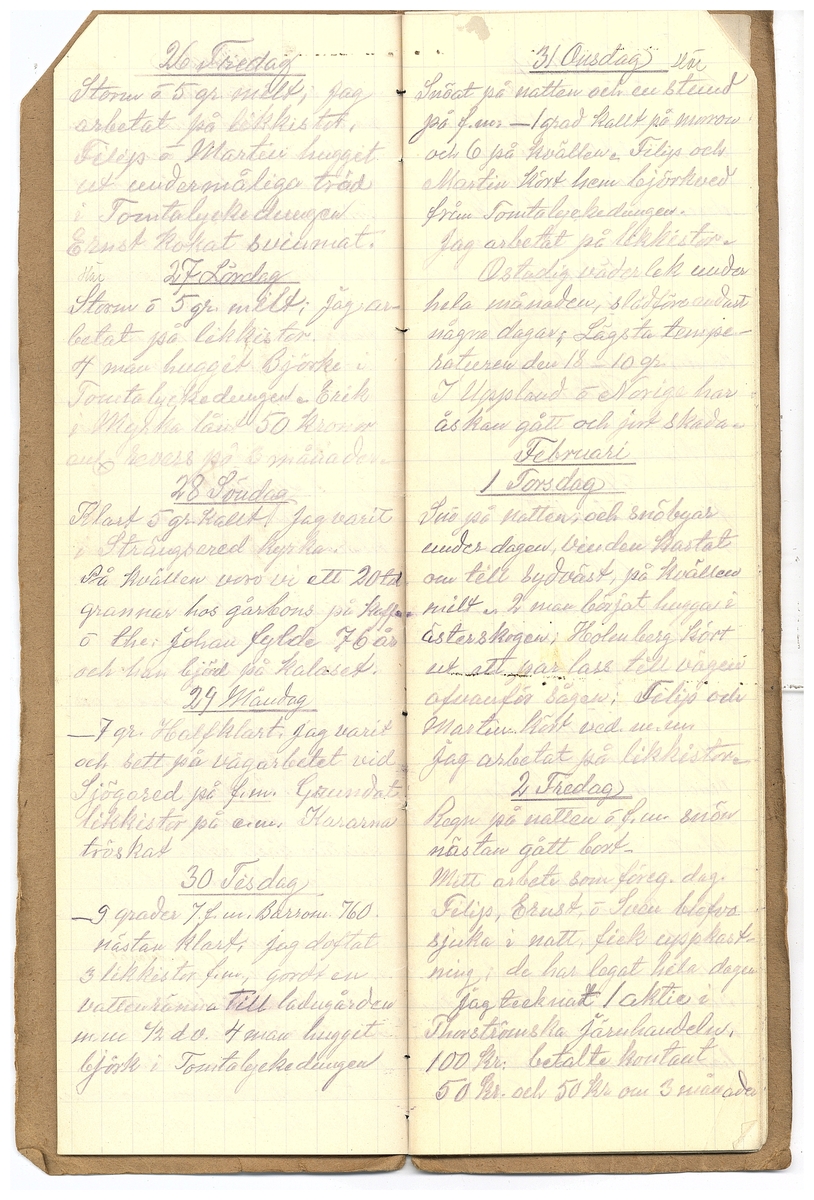 26 Fredag
Storm o 5 gr milt; jag
arbetat på likkistor.
Filip o Martin hugget
ut undermåliga träd
i Tomtalyckedungen
Ernst kokat svinmat.
27 Lördag
Storm o 5 gr. milt; jag ar-
betat på likkistor.
4 man hugget Björke i
Tomtalyckedungen. Erik
i Myrka lånt 50 kronor
revers på 6 månader.
28 Söndag
Klart 5 gr. kallt. Jag varit
i Strängsered kyrka.
På kvällen voro vi ett 20tal
grannar hos gårbons på kaffe
o the; Johan fylde 76 år
och han bjöd på kalaset.
29 Måndag
—7 gr. Halfklart, jag varit
och sett på vägarbetet vid
Sjögared på f.m. Grundat
likkistor på e.m. Kararna
tröskat
30 Tisdag
—9 grader 7 f.m. Barrom. 760.
nästan klart, jag doftat
3 likkistor f.m., gordt en
vattenränna till ladugården
m.m 1/2 d.v. 4 man hugget
björk i Tomtalyckedungen
31 Onsdag
Snöat på natten och en stund
på f.m. —1 grad kallt på moron
och 6 på kvällen. Filip och
Martin kört hem björkved
från Tomtalyckedungen.
Jag arbetat på likkistor.
Ostadig väderlek under
hela månaden, slädföre endast
några dagar; Lägsta tempe-
raturen den 18 —10 gr.
I Uppland o Norige har
åskan gått och jort skada.
Februari
1 Torsdag
Snö på natten, och snöbyar
under dagen, vinden kastat
om till sydväst, på kvällen
milt. 2 man börjat hugga i
österskogen; Holmberg kört
ut ett par lass till vägen
ofvanför sågen; Filip och
Martin kört ved m.m.
Jag arbetat på likkistor.
2 Fredag
Regn på natten o f.m. snön
nästan gått bort.
Mitt arbete som föreg. dag.
Filip, Ernst, o Sven blefvo
sjuka i natt, fick uppkast-
ning, de har legat hela dagen
Jag tecknat 1 aktie i
Thorströmska Järnhandeln,
100 Kr; betalte kontant
50 kr. och 50 kr om 3 månader